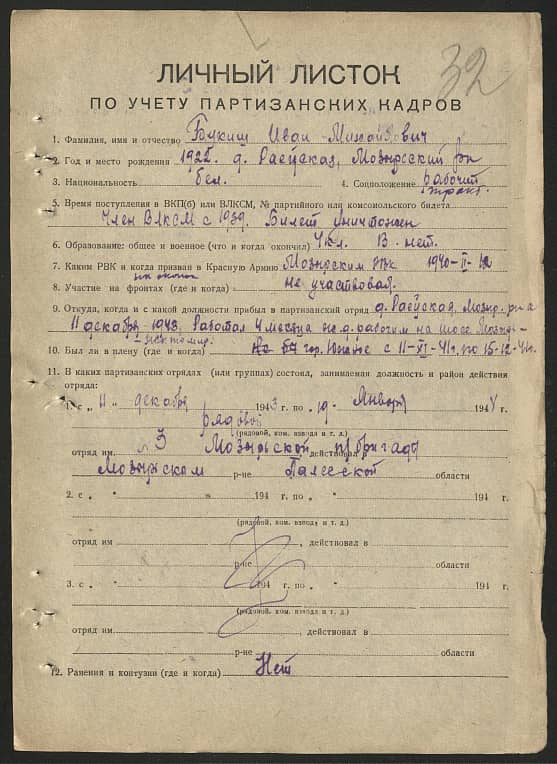 32
ЛИЧНЫЙ ЛИСТОК
ПО УЧЕТУ ПАРТИЗАНСКИХ КАДРОВ
1. Фамилия, имя и отчество Букиш Иван Михайлович
2. Год и место рождения 1922 д. Раевская, Мозырский р-н
3. Национальность бел. 4. Соцположение рабочий
5. Время поступления в ВКП(б) или ВЛКСМ, № партийного или комсомольского билета
Член ВЛКСМ с 1939. Билет уничтожен
6. Образование: общее и военное (что и когда окончил) 4 кл. В. нет.
7. Каким РВК и когда призван в Красную Армию Мозырским РВК 1940-II-12
8. Участие на фронтах (где и когда) не участвовал.
9. Откуда, когда и с какой должности прибыл в партизанский отряд д. Раеўская, Мозыр. р-на
11 декабря 1943. Работал 4 месяца на д. рабочим на шосе
10. Был ли в плену (где и когда) гор. с 11-XI-41г. по 15-12-41г.
11. В каких партизанских отрядах (или группах) состоял, занимаемая должность и район действия
отряда:
1. с „ 11 „ декабря 1943 г. по „ 19 „ Января 194 г.
рядовой
(рядовой, ком. взвода и т. д.)
отряд им №3 Мозырьской действовал п/бригады
Мозырском р-не Палесской области
2. с „ „ 194 г. по „ „ 194 г.
(рядовой, ком. взвода и т. д.)
отряд им , действовал в
р-не области
3. с „ „ 194 г. по „ „ 194 г.
(рядовой, ком. взвода и т. д.)
отряд им. , действовал в
р-не области
12. Ранения и контузии (где и когда) Нет